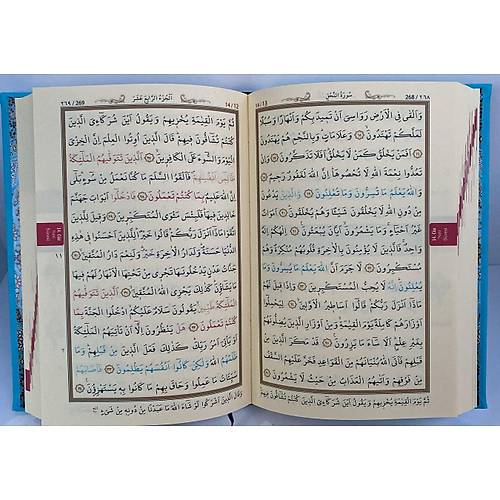 268 / ٢٦٨ سُورَةُ النَّحْلِ 14/13
وَاَلْقٰى فِى الْاَرْضِ رَوَاسِىَ اَنْ تَمِيدَ بِكُمْ وَاَنْهَارًا وَسُبُلًا
لَعَلَّكُمْ تَهْتَدُونَ ﴿١٥﴾ وَعَلَامَاتٍ وَبِالنَّجْمِ هُمْ يَهْتَدُونَ
﴿١٦﴾ اَفَمَنْ يَخْلُقُ كَمَنْ لَا يَخْلُقُ اَفَلَا تَذَكَّرُونَ ﴿١٧﴾ وَاِنْ
تَعُدُّوا نِعْمَةَ اللّٰهِ لَا تُحْصُوهَا اِنَّ اللّٰهَ لَغَفُورٌ رَحِيمٌ ﴿١٨﴾
وَاللّٰهُ يَعْلَمُ مَا تُسِرُّونَ وَمَا تُعْلِنُونَ ﴿١٩﴾ وَالَّذِينَ يَدْعُونَ
مِنْ دُونِ اللّٰهِ لَا يَخْلُقُونَ شَيْئًا وَهُمْ يُخْلَقُونَ ﴿٢٠﴾ اَمْوَاتٌ
غَيْرُ اَحْيَاءٍ وَمَا يَشْعُرُونَ اَيَّانَ يُبْعَثُونَ ﴿٢١﴾ اِلٰهُكُمْ اِلٰهٌ
وَاحِدٌ فَالَّذِينَ لَا يُؤْمِنُونَ بِالْاٰخِرَةِ قُلُوبُهُمْ مُنْكِرَةٌ وَهُمْ
مُسْتَكْبِرُونَ ﴿٢٢﴾ لَا جَرَمَ اَنَّ اللّٰهَ يَعْلَمُ مَا يُسِرُّونَ وَمَا
يُعْلِنُونَ اِنَّهُ لَا يُحِبُّ الْمُسْتَكْبِرِينَ ﴿٢٣﴾ وَاِذَا قِيلَ لَهُمْ
مَاذَا اَنْزَلَ رَبُّكُمْ قَالُوا اَسَاطِيرُ الْاَوَّلِينَ ﴿٢٤﴾ لِيَحْمِلُوا
اَوْزَارَهُمْ كَامِلَةً يَوْمَ الْقِيٰمَةِ وَمِنْ اَوْزَارِ الَّذِينَ يُضِلُّونَهُمْ
بِغَيْرِ عِلْمٍ اَلَا سَاءَ مَا يَزِرُونَ ﴿٢٥﴾ قَدْ مَكَرَ الَّذِينَ مِنْ
قَبْلِهِمْ فَاَتَى اللّٰهُ بُنْيَانَهُمْ مِنَ الْقَوَاعِدِ فَخَرَّ عَلَيْهِمُ السَّقْفُ
مِنْ فَوْقِهِمْ وَاَتٰيهُمُ الْعَذَابُ مِنْ حَيْثُ لَا يَشْعُرُونَ ﴿٢٦﴾
ثُمَّ يَوْمَ الْقِيٰمَةِ يُخْزِيهِمْ وَيَقُولُ اَيْنَ شُرَكَاءِىَ الَّذِينَ كُنْتُمْ تُشَاقُّونَ فِيهِمْ
14/12 اَلْجُزْءُ الرَّابِعَ عَشَرَ 269 / ٢٦٩
ثُمَّ يَوْمَ الْقِيٰمَةِ يُخْزِيهِمْ وَيَقُولُ اَيْنَ شُرَكَاءِىَ الَّذِينَ
كُنْتُمْ تُشَاقُّونَ فِيهِمْ قَالَ الَّذِينَ اُوتُوا الْعِلْمَ اِنَّ الْخِزْىَ
الْيَوْمَ وَالسُّوءَ عَلَى الْكَافِرِينَ ﴿٢٧﴾ اَلَّذِينَ تَتَوَفّٰيهُمُ الْمَلٰئِكَةُ
ظَالِمِى اَنْفُسِهِمْ فَاَلْقَوُا السَّلَمَ مَا كُنَّا نَعْمَلُ مِنْ سُوءٍ بَلٰى
اِنَّ اللّٰهَ عَلِيمٌ بِمَا كُنْتُمْ تَعْمَلُونَ ﴿٢٨﴾ فَادْخُلُوا اَبْوَابَ جَهَنَّمَ
خَالِدِينَ فِيهَا فَلَبِئْسَ مَثْوَى الْمُتَكَبِّرِينَ ﴿٢٩﴾ وَقِيلَ لِلَّذِينَ
اتَّقَوْا مَاذَا اَنْزَلَ رَبُّكُمْ قَالُوا خَيْرًا لِلَّذِينَ اَحْسَنُوا فِى هٰذِهِ
الدُّنْيَا حَسَنَةٌ وَلَدَارُ الْاٰخِرَةِ خَيْرٌ وَلَنِعْمَ دَارُ الْمُتَّقِينَ ﴿٣٠﴾
جَنَّاتُ عَدْنٍ يَدْخُلُونَهَا تَجْرِى مِنْ تَحْتِهَا الْاَنْهَارُ لَهُمْ فِيهَا
مَا يَشَاؤُنَ كَذٰلِكَ يَجْزِى اللّٰهُ الْمُتَّقِينَ ﴿٣١﴾ اَلَّذِينَ تَتَوَفّٰيهُمُ
الْمَلٰئِكَةُ طَيِّبِينَ يَقُولُونَ سَلَامٌ عَلَيْكُمُ ادْخُلُوا الْجَنَّةَ بِمَا
كُنْتُمْ تَعْمَلُونَ ﴿٣٢﴾ هَلْ يَنْظُرُونَ اِلَّا اَنْ تَأْتِيَهُمُ الْمَلٰئِكَةُ
اَوْ يَأْتِىَ اَمْرُ رَبِّكَ كَذٰلِكَ فَعَلَ الَّذِينَ مِنْ قَبْلِهِمْ وَمَا
ظَلَمَهُمُ اللّٰهُ وَلٰكِنْ كَانُوا اَنْفُسَهُمْ يَظْلِمُونَ ﴿٣٣﴾ فَاَصَابَهُمْ
سَيِّـَٔاتُ مَا عَمِلُوا وَحَاقَ بِهِمْ مَا كَانُوا بِهِ يَسْتَهْزِؤُنَ ﴿٣٤﴾
وَقَالَ الَّذِينَ اَشْرَكُوا لَوْ شَاءَ اللّٰهُ مَا عَبَدْنَا مِنْ دُونِهِ مِنْ شَىْءٍ
14. Cüz
14. Cüz